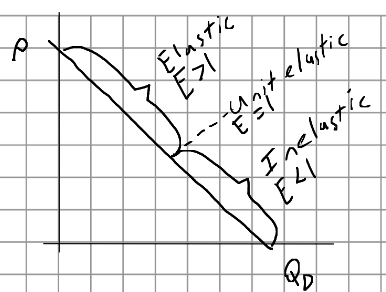 P
Elastic
E>1
Unit elastic
E=1
Inelastic
E<1
QD